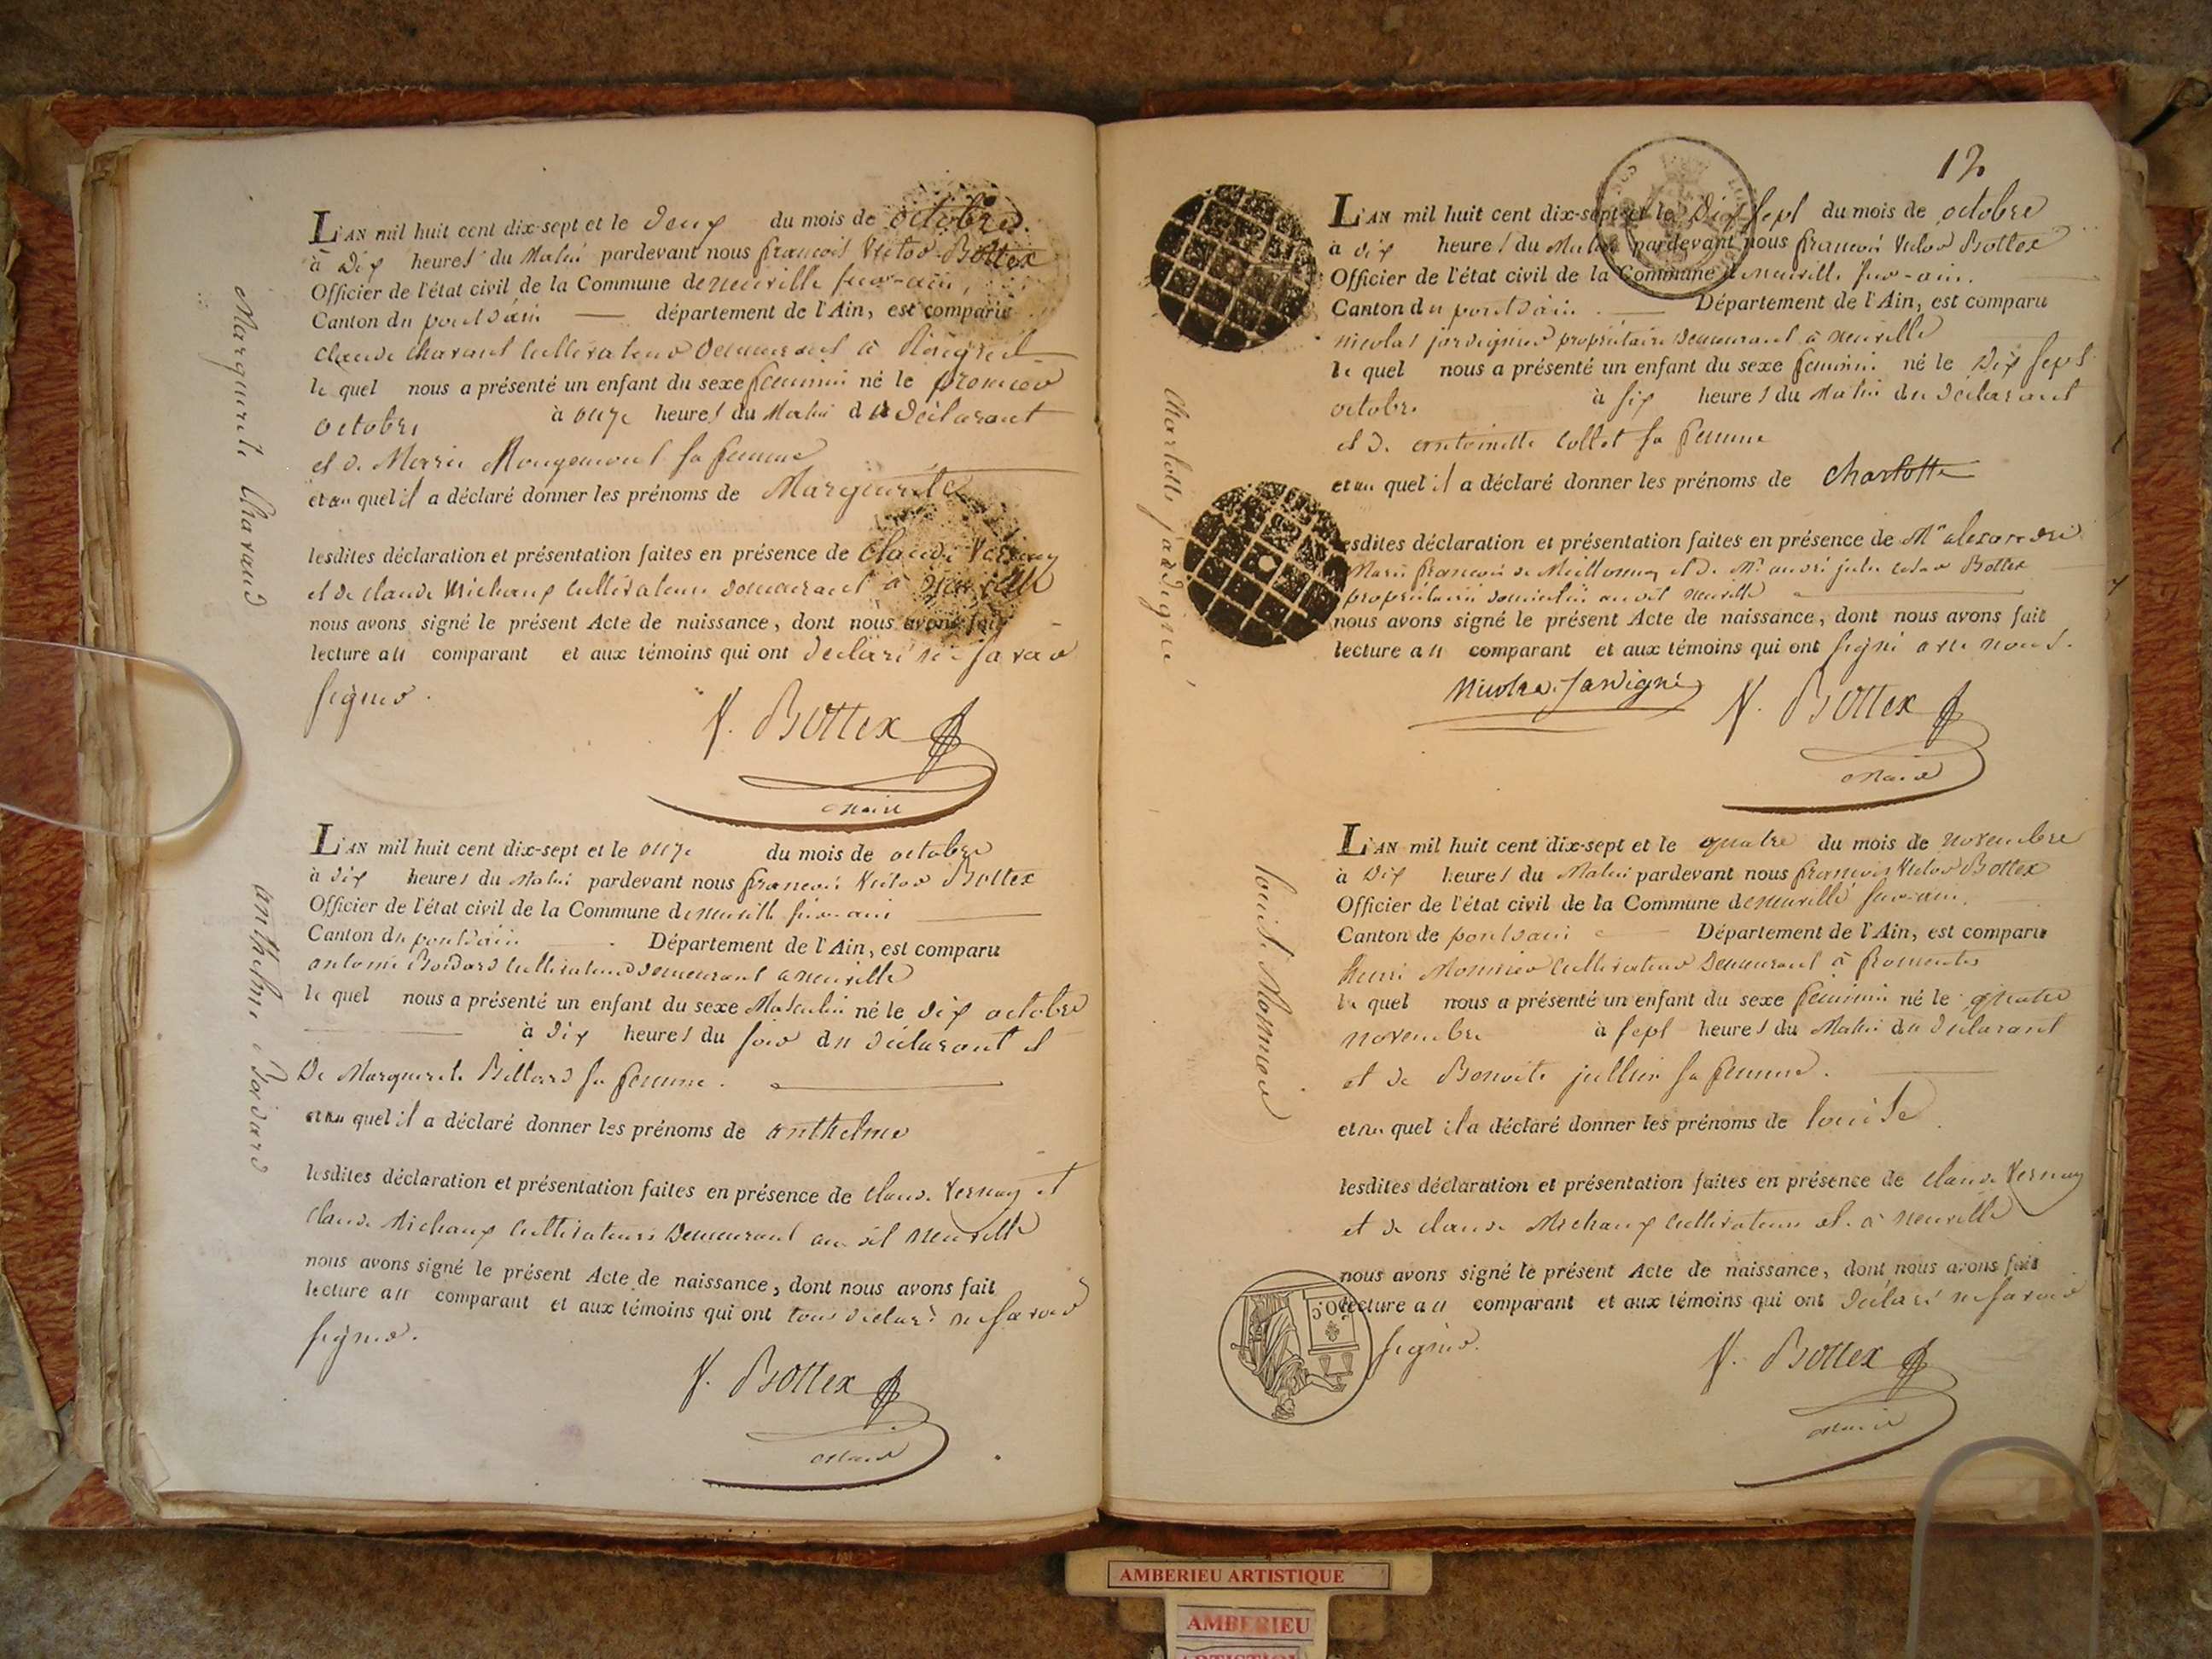 L'AN mil huit cent dix-sept et le deux du mois de octobre
à dix heures du Matin pardevant nous françois Victor Bottex
Officier de l'état civil de la Commune de neuville sur-ain,
Canton du pontdain département de l'Ain, est comparu
claude Charaud Cultivateur demeurant à
le quel nous a présenté un enfant du sexe feminin né le premier
octobre à onze heures du Matin du déclarant
et de Marie Mougemont sa femme
et au quel il a déclaré donner les prénoms de Marguerite
lesdites déclaration et présentation faites en présence de Claude Vernay
et de claude Michaux Cultivateurs demeurant à neuville
nous avons signé le présent Acte de naissance, dont nous avons fait
lecture au comparant et aux témoins qui ont déclaré ne savoir
signer.
V. Bottex
maire
Marguerite Charaud
L'AN mil huit cent dix-sept et le onze du mois de octobre
à dix heures du Matin pardevant nous françois Victor Bottex
Officier de l'état civil de la Commune de neuville sur-ain
Canton du pontdain Département de l'Ain, est comparu
antoine Boidard Cultivateur demeurant a neuville
le quel nous a présenté un enfant du sexe Masculin né le dix octobre
à dix heures du soir du déclarant et
De Marguerite Billard sa femme.
et au quel il a déclaré donner les prénoms de anthelme
lesdites déclaration et présentation faites en présence de claude Vernay et
claude Michaux Cultivateurs demeurant au dit neuville
nous avons signé le présent Acte de naissance, dont nous avons fait
lecture au comparant et aux témoins qui ont tous déclaré ne savoir
signer.
V. Bottex
maire
anthelme Boidard
12
L'AN mil huit cent dix-sept et le dix sept du mois de octobre
à dix heures du Matin pardevant nous françois Victor Bottex
Officier de l'état civil de la Commune de neuville sur-ain.
Canton du pontdain. Département de l'Ain, est comparu
nicolas jardignier propriétaire demeurant à neuville
le quel nous a présenté un enfant du sexe feminin né le dix sept
octobre à six heures du Matin du déclarant
et d. antoinette Collet sa femme
et au quel il a déclaré donner les prénoms de Charlotte
lesdites déclaration et présentation faites en présence de Mr alexandre
Marie françois de Meillonnay et de Mr andré jules cesar Bottex
propriétaires domiciliés au dit neuville
nous avons signé le présent Acte de naissance, dont nous avons fait
lecture au comparant et aux témoins qui ont signé avec nous.
Nicolas Jardigné
V. Bottex
maire
Charlotte jardignié
L'AN mil huit cent dix-sept et le quatre du mois de novembre
à dix heures du Matin pardevant nous françois Victor Bottex
Officier de l'état civil de la Commune de neuville sur-ain.
Canton de pontdain Département de l'Ain, est comparu
henri Monnier Cultivateur demeurant à fromentes
le quel nous a présenté un enfant du sexe feminin né le quatre
novembre à sept heures du Matin du déclarant
et de Benoite jullien sa femme.
et au quel il a déclaré donner les prénoms de louise
lesdites déclaration et présentation faites en présence de claude Vernay
et de claude Michaux Cultivateurs et. à neuville
nous avons signé le présent Acte de naissance, dont nous avons fait
lecture au comparant et aux témoins qui ont déclaré ne savoir
signer.
V. Bottex
maire
louise Monnier
AMBERIEU ARTISTIQUE
AMBERIEU
ARTISTIQUE